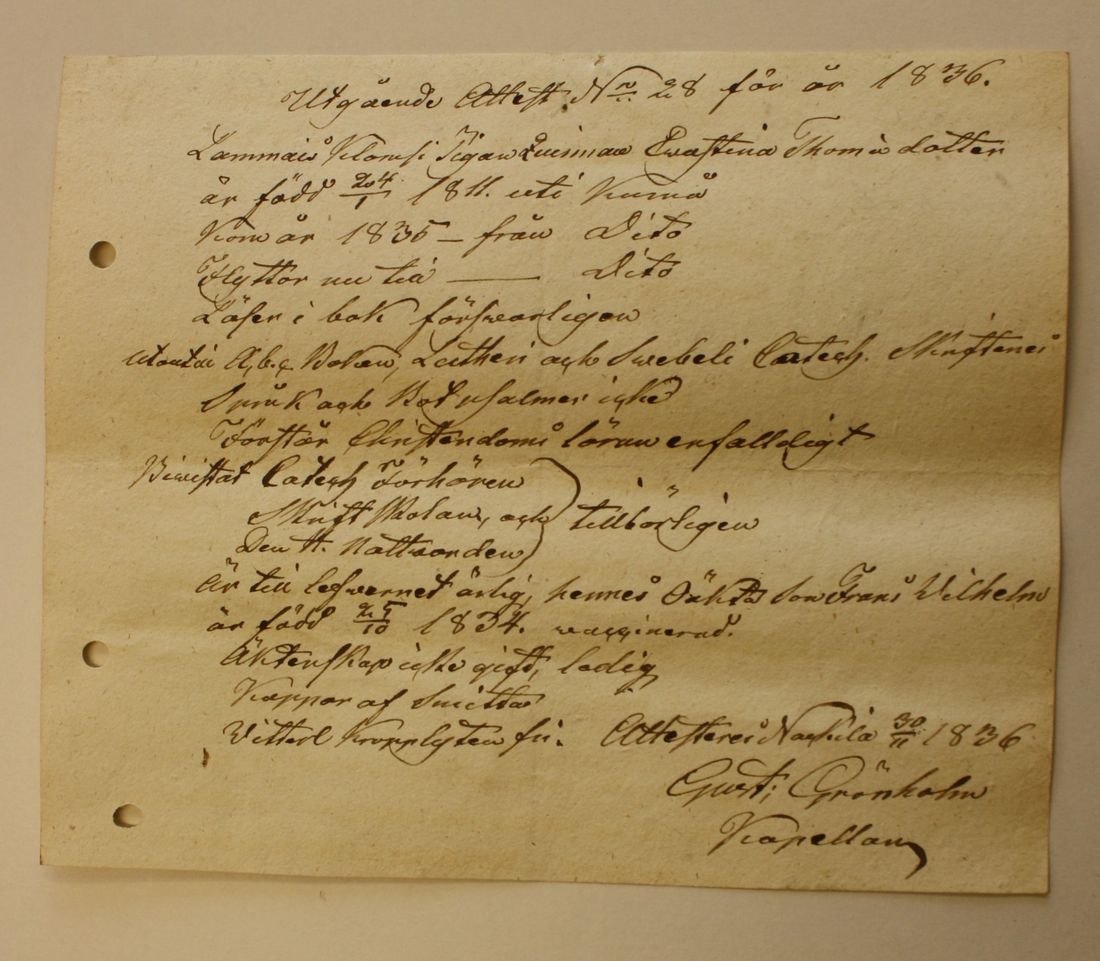 Utgående Attest N:o 28 för år 1836.
Lammais Klomsi Pigan Quinnan Ewastina Thomæ dotter
är född 24/1 1811. uti Kumå
Kom år 1835 – från Dito
Flyttar nu till —— Dito
Läser i bok förswarligen
utantill A,b,c Boken, Lutheri och Swebeli Catech. Skriftenes
Språk och Botpsalmer icke
Förstår Christendoms läran enfalldigt
Biwistat Catech Förhören
Skriftskolan, och tillbörligen
Den H. Nattvarden
Är till lefwernet ärlig, hennes Oäkta Son Frans Wilhelm
är född 25/10 1834. waccinerad.
Äktenskap icke gift, ledig
Koppor af Smitta
Witterl Kropplyten fri. Attesteres Nackila 30/11 1836
Gust: Grönholm
Kapellan